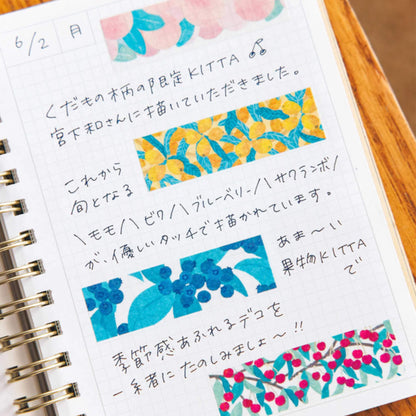 6/2 月
くだもの柄の限定KITTA
宮下和さんに描いていただきました。
これから
旬となる
\モモ/\ビワ/\ブルーベリー/\サクランボ/
が、優しいタッチで描かれています。
あま〜い
果物KITTA
で
季節感あふれるデコを
一緒にたのしみましょ〜!!